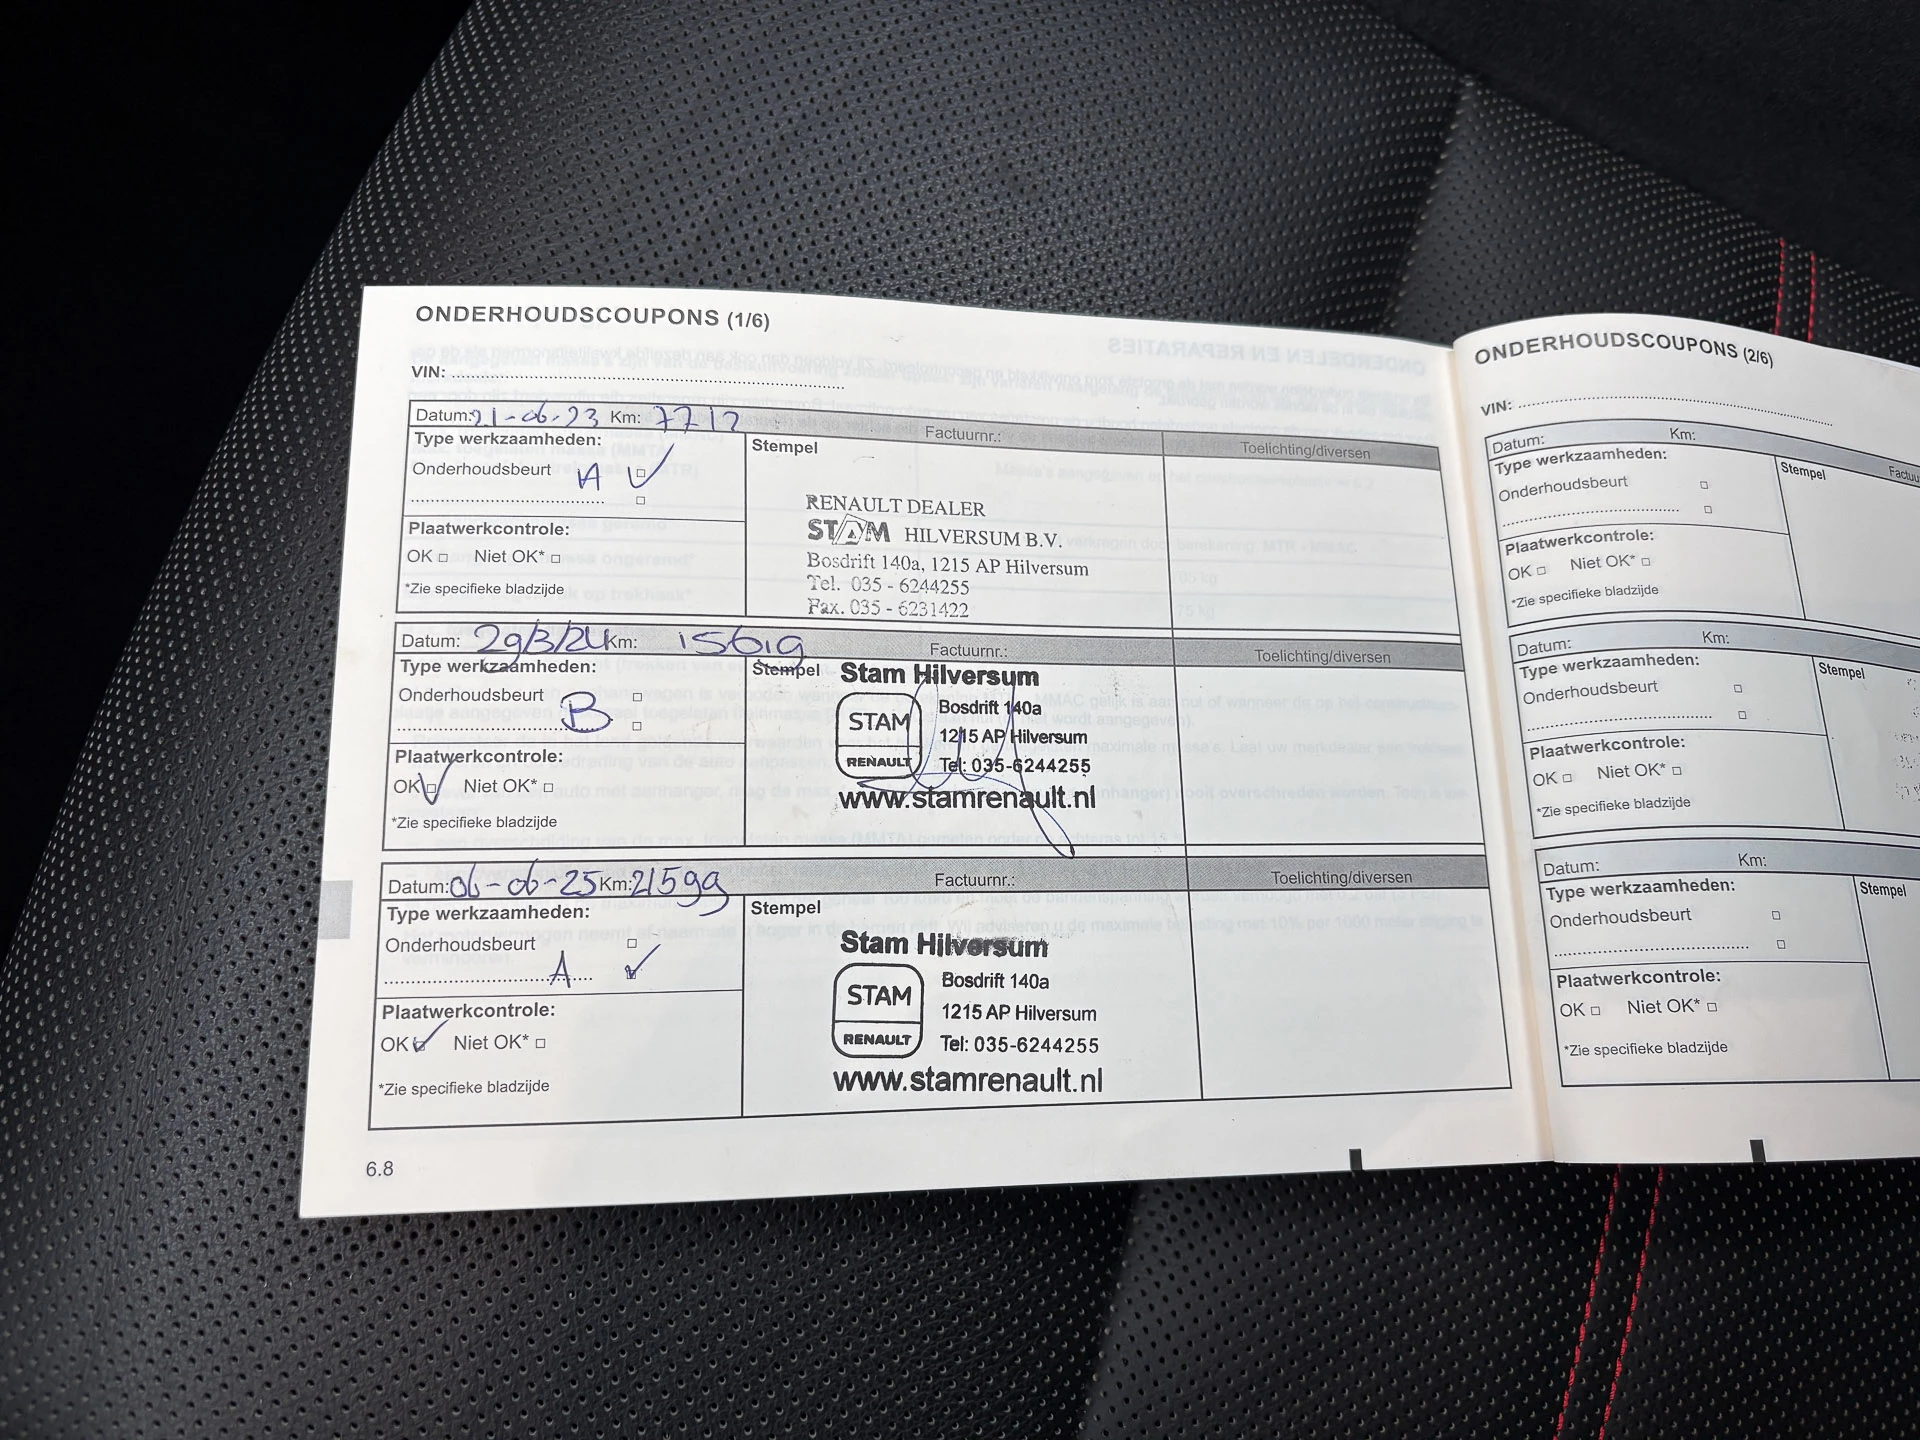 ONDERHOUDSCOUPONS (1/6)
VIN:
Datum: 21-06-23 Km: 7712
Factuurnr.:
Toelichting/diversen
Type werkzaamheden:
Stempel
Onderhoudsbeurt A
Plaatwerkcontrole:
OK Niet OK*
*Zie specifieke bladzijde
RENAULT DEALER
STAM HILVERSUM B.V.
Bosdrift 140a, 1215 AP Hilversum
Tel. 035 - 6244255
Fax. 035 - 6231422
Datum: 29/3/24 Km: 15619
Factuurnr.:
Toelichting/diversen
Type werkzaamheden:
Stempel
Onderhoudsbeurt
B
Plaatwerkcontrole:
OK Niet OK*
*Zie specifieke bladzijde
Stam Hilversum
STAM
RENAULT
Bosdrift 140a
1215 AP Hilversum
Tel: 035-6244255
www.stamrenault.nl
Datum: 06-06-25 Km: 21599
Factuurnr.:
Toelichting/diversen
Type werkzaamheden:
Stempel
Onderhoudsbeurt
A
Plaatwerkcontrole:
OK Niet OK*
*Zie specifieke bladzijde
Stam Hilversum
STAM
RENAULT
Bosdrift 140a
1215 AP Hilversum
Tel: 035-6244255
www.stamrenault.nl
6.8
ONDERHOUDSCOUPONS (2/6)
VIN:
Datum: Km:
Factuu
Type werkzaamheden:
Stempel
Onderhoudsbeurt
Plaatwerkcontrole:
OK Niet OK*
*Zie specifieke bladzijde
Datum: Km:
Type werkzaamheden:
Stempel
Onderhoudsbeurt
Plaatwerkcontrole:
OK Niet OK*
*Zie specifieke bladzijde
Datum: Km:
Type werkzaamheden:
Stempel
Onderhoudsbeurt
Plaatwerkcontrole:
OK Niet OK*
*Zie specifieke bladzijde